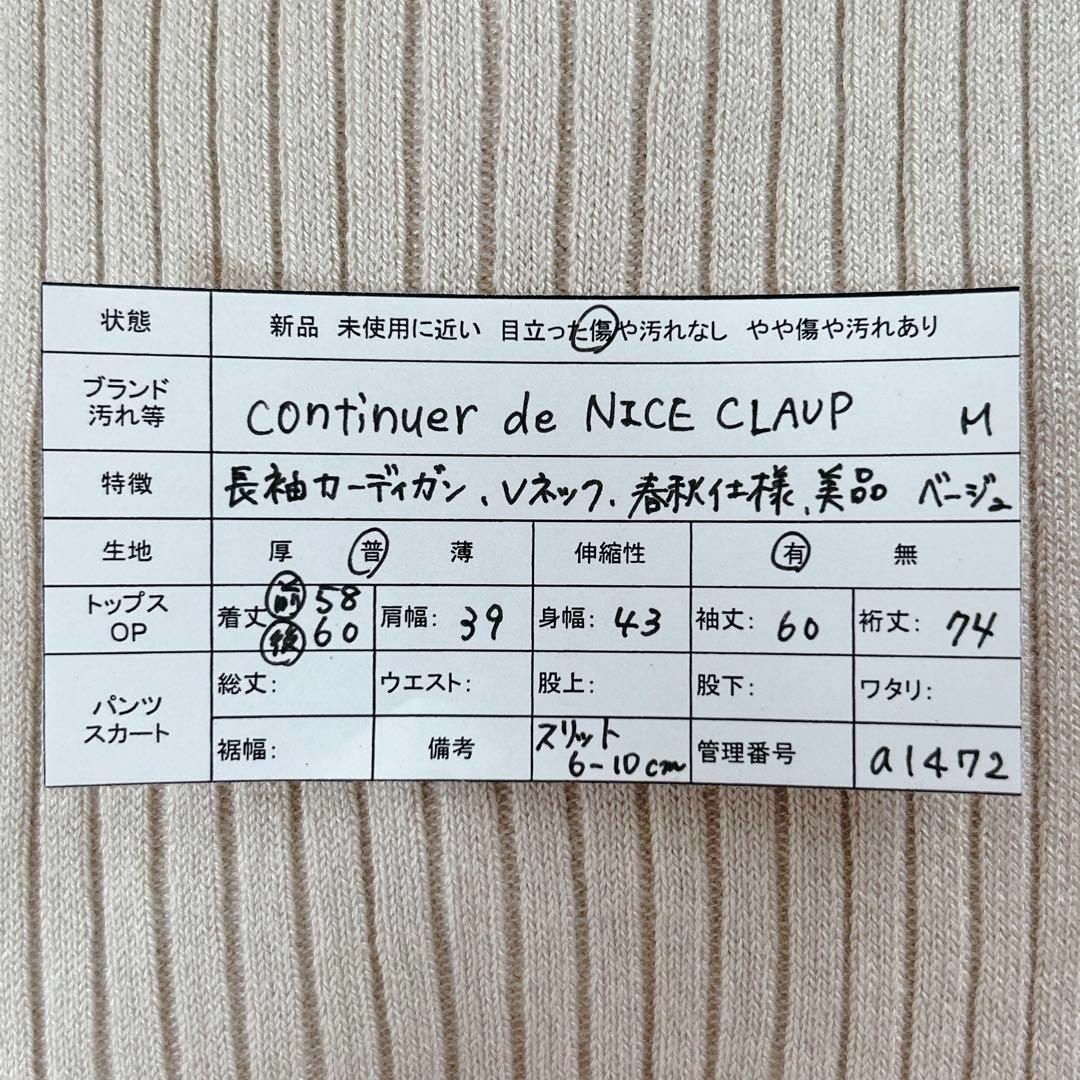 状態 新品 未使用に近い 目立った傷や汚れなし やや傷や汚れあり
ブランド
汚れ等
continuer de NICE CLAUP M
特徴 長袖カーディガン、Vネック、春秋仕様、美品 ベージュ
生地 厚 普 薄 伸縮性 有 無
トップス
OP
着丈 前 58
後 60
肩幅: 39 身幅: 43 袖丈: 60 裄丈: 74
パンツ
スカート
総丈: ウエスト: 股上: 股下: ワタリ:
裾幅: 備考 スリット
6-10cm
管理番号 a1472